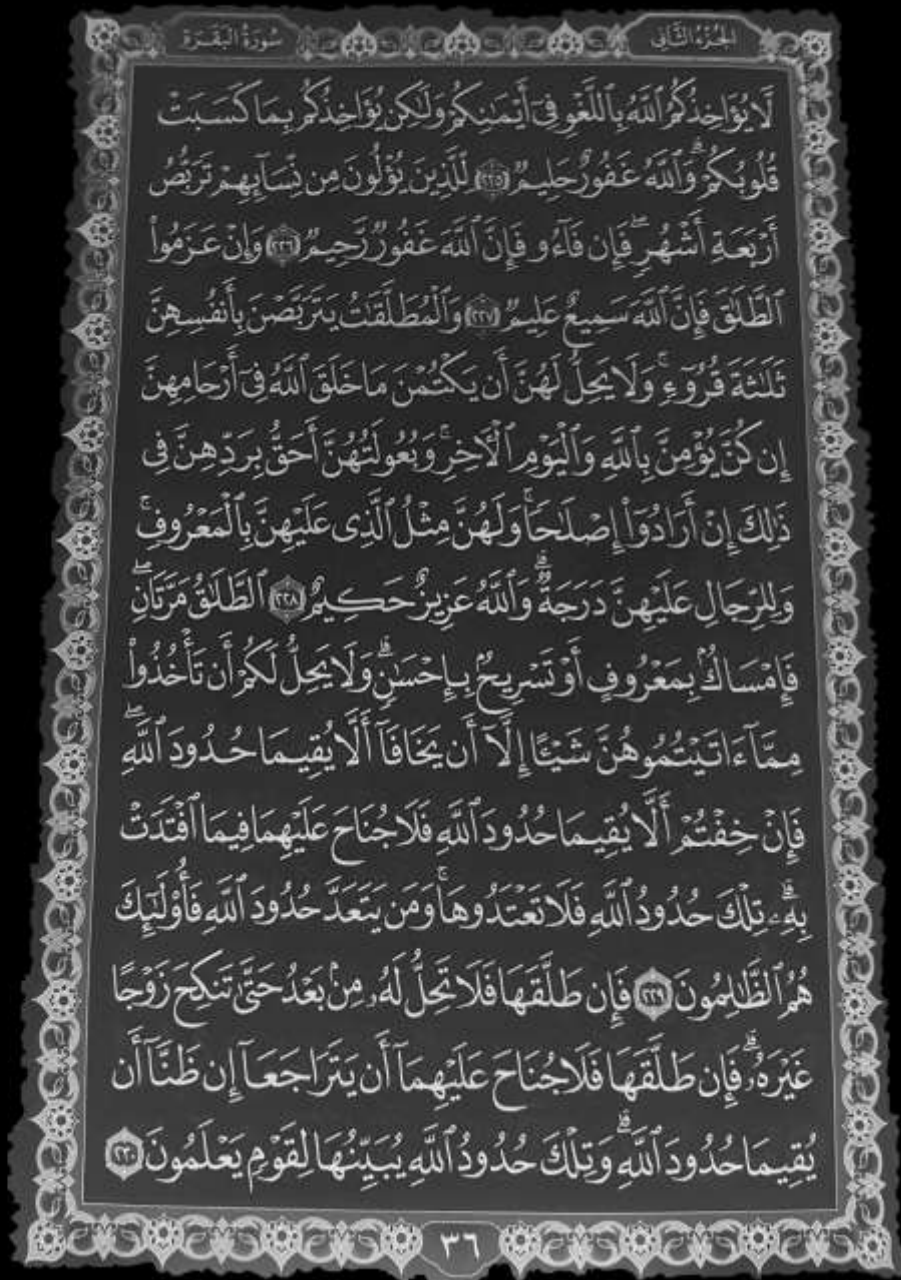 الجُزْءُ الثَّانِي سُورَةُ البَقَرَةِ
لَّا يُؤَاخِذُكُمُ ٱللَّهُ بِٱللَّغْوِ فِىٓ أَيْمَـٰنِكُمْ وَلَـٰكِن يُؤَاخِذُكُم بِمَا كَسَبَتْ
قُلُوبُكُمْ ۗ وَٱللَّهُ غَفُورٌ حَلِيمٌ ٢٢٥ لِّلَّذِينَ يُؤْلُونَ مِن نِّسَآئِهِمْ تَرَبُّصُ
أَرْبَعَةِ أَشْهُرٍ ۖ فَإِن فَآءُو فَإِنَّ ٱللَّهَ غَفُورٌ رَّحِيمٌ ٢٢٦ وَإِنْ عَزَمُوا۟
ٱلطَّلَـٰقَ فَإِنَّ ٱللَّهَ سَمِيعٌ عَلِيمٌ ٢٢٧ وَٱلْمُطَلَّقَـٰتُ يَتَرَبَّصْنَ بِأَنفُسِهِنَّ
ثَلَـٰثَةَ قُرُوٓءٍ ۚ وَلَا يَحِلُّ لَهُنَّ أَن يَكْتُمْنَ مَا خَلَقَ ٱللَّهُ فِىٓ أَرْحَامِهِنَّ
إِن كُنَّ يُؤْمِنَّ بِٱللَّهِ وَٱلْيَوْمِ ٱلْـَٔاخِرِ ۚ وَبُعُولَتُهُنَّ أَحَقُّ بِرَدِّهِنَّ فِى
ذَٰلِكَ إِنْ أَرَادُوٓا۟ إِصْلَـٰحًا ۚ وَلَهُنَّ مِثْلُ ٱلَّذِى عَلَيْهِنَّ بِٱلْمَعْرُوفِ ۚ
وَلِلرِّجَالِ عَلَيْهِنَّ دَرَجَةٌ ۗ وَٱللَّهُ عَزِيزٌ حَكِيمٌ ٢٢٨ ٱلطَّلَـٰقُ مَرَّتَانِ ۖ
فَإِمْسَاكٌۢ بِمَعْرُوفٍ أَوْ تَسْرِيحٌۢ بِإِحْسَـٰنٍ ۗ وَلَا يَحِلُّ لَكُمْ أَن تَأْخُذُوا۟
مِمَّآ ءَاتَيْتُمُوهُنَّ شَيْـًٔا إِلَّآ أَن يَخَافَآ أَلَّا يُقِيمَا حُدُودَ ٱللَّهِ ۖ
فَإِنْ خِفْتُمْ أَلَّا يُقِيمَا حُدُودَ ٱللَّهِ فَلَا جُنَاحَ عَلَيْهِمَا فِيمَا ٱفْتَدَتْ
بِهِۦ ۗ تِلْكَ حُدُودُ ٱللَّهِ فَلَا تَعْتَدُوهَا ۚ وَمَن يَتَعَدَّ حُدُودَ ٱللَّهِ فَأُو۟لَـٰٓئِكَ
هُمُ ٱلظَّـٰلِمُونَ ٢٢٩ فَإِن طَلَّقَهَا فَلَا تَحِلُّ لَهُۥ مِنۢ بَعْدُ حَتَّىٰ تَنكِحَ زَوْجًا
غَيْرَهُۥ ۗ فَإِن طَلَّقَهَا فَلَا جُنَاحَ عَلَيْهِمَآ أَن يَتَرَاجَعَآ إِن ظَنَّآ أَن
يُقِيمَا حُدُودَ ٱللَّهِ ۗ وَتِلْكَ حُدُودُ ٱللَّهِ يُبَيِّنُهَا لِقَوْمٍ يَعْلَمُونَ ٢٣٠
٣٦